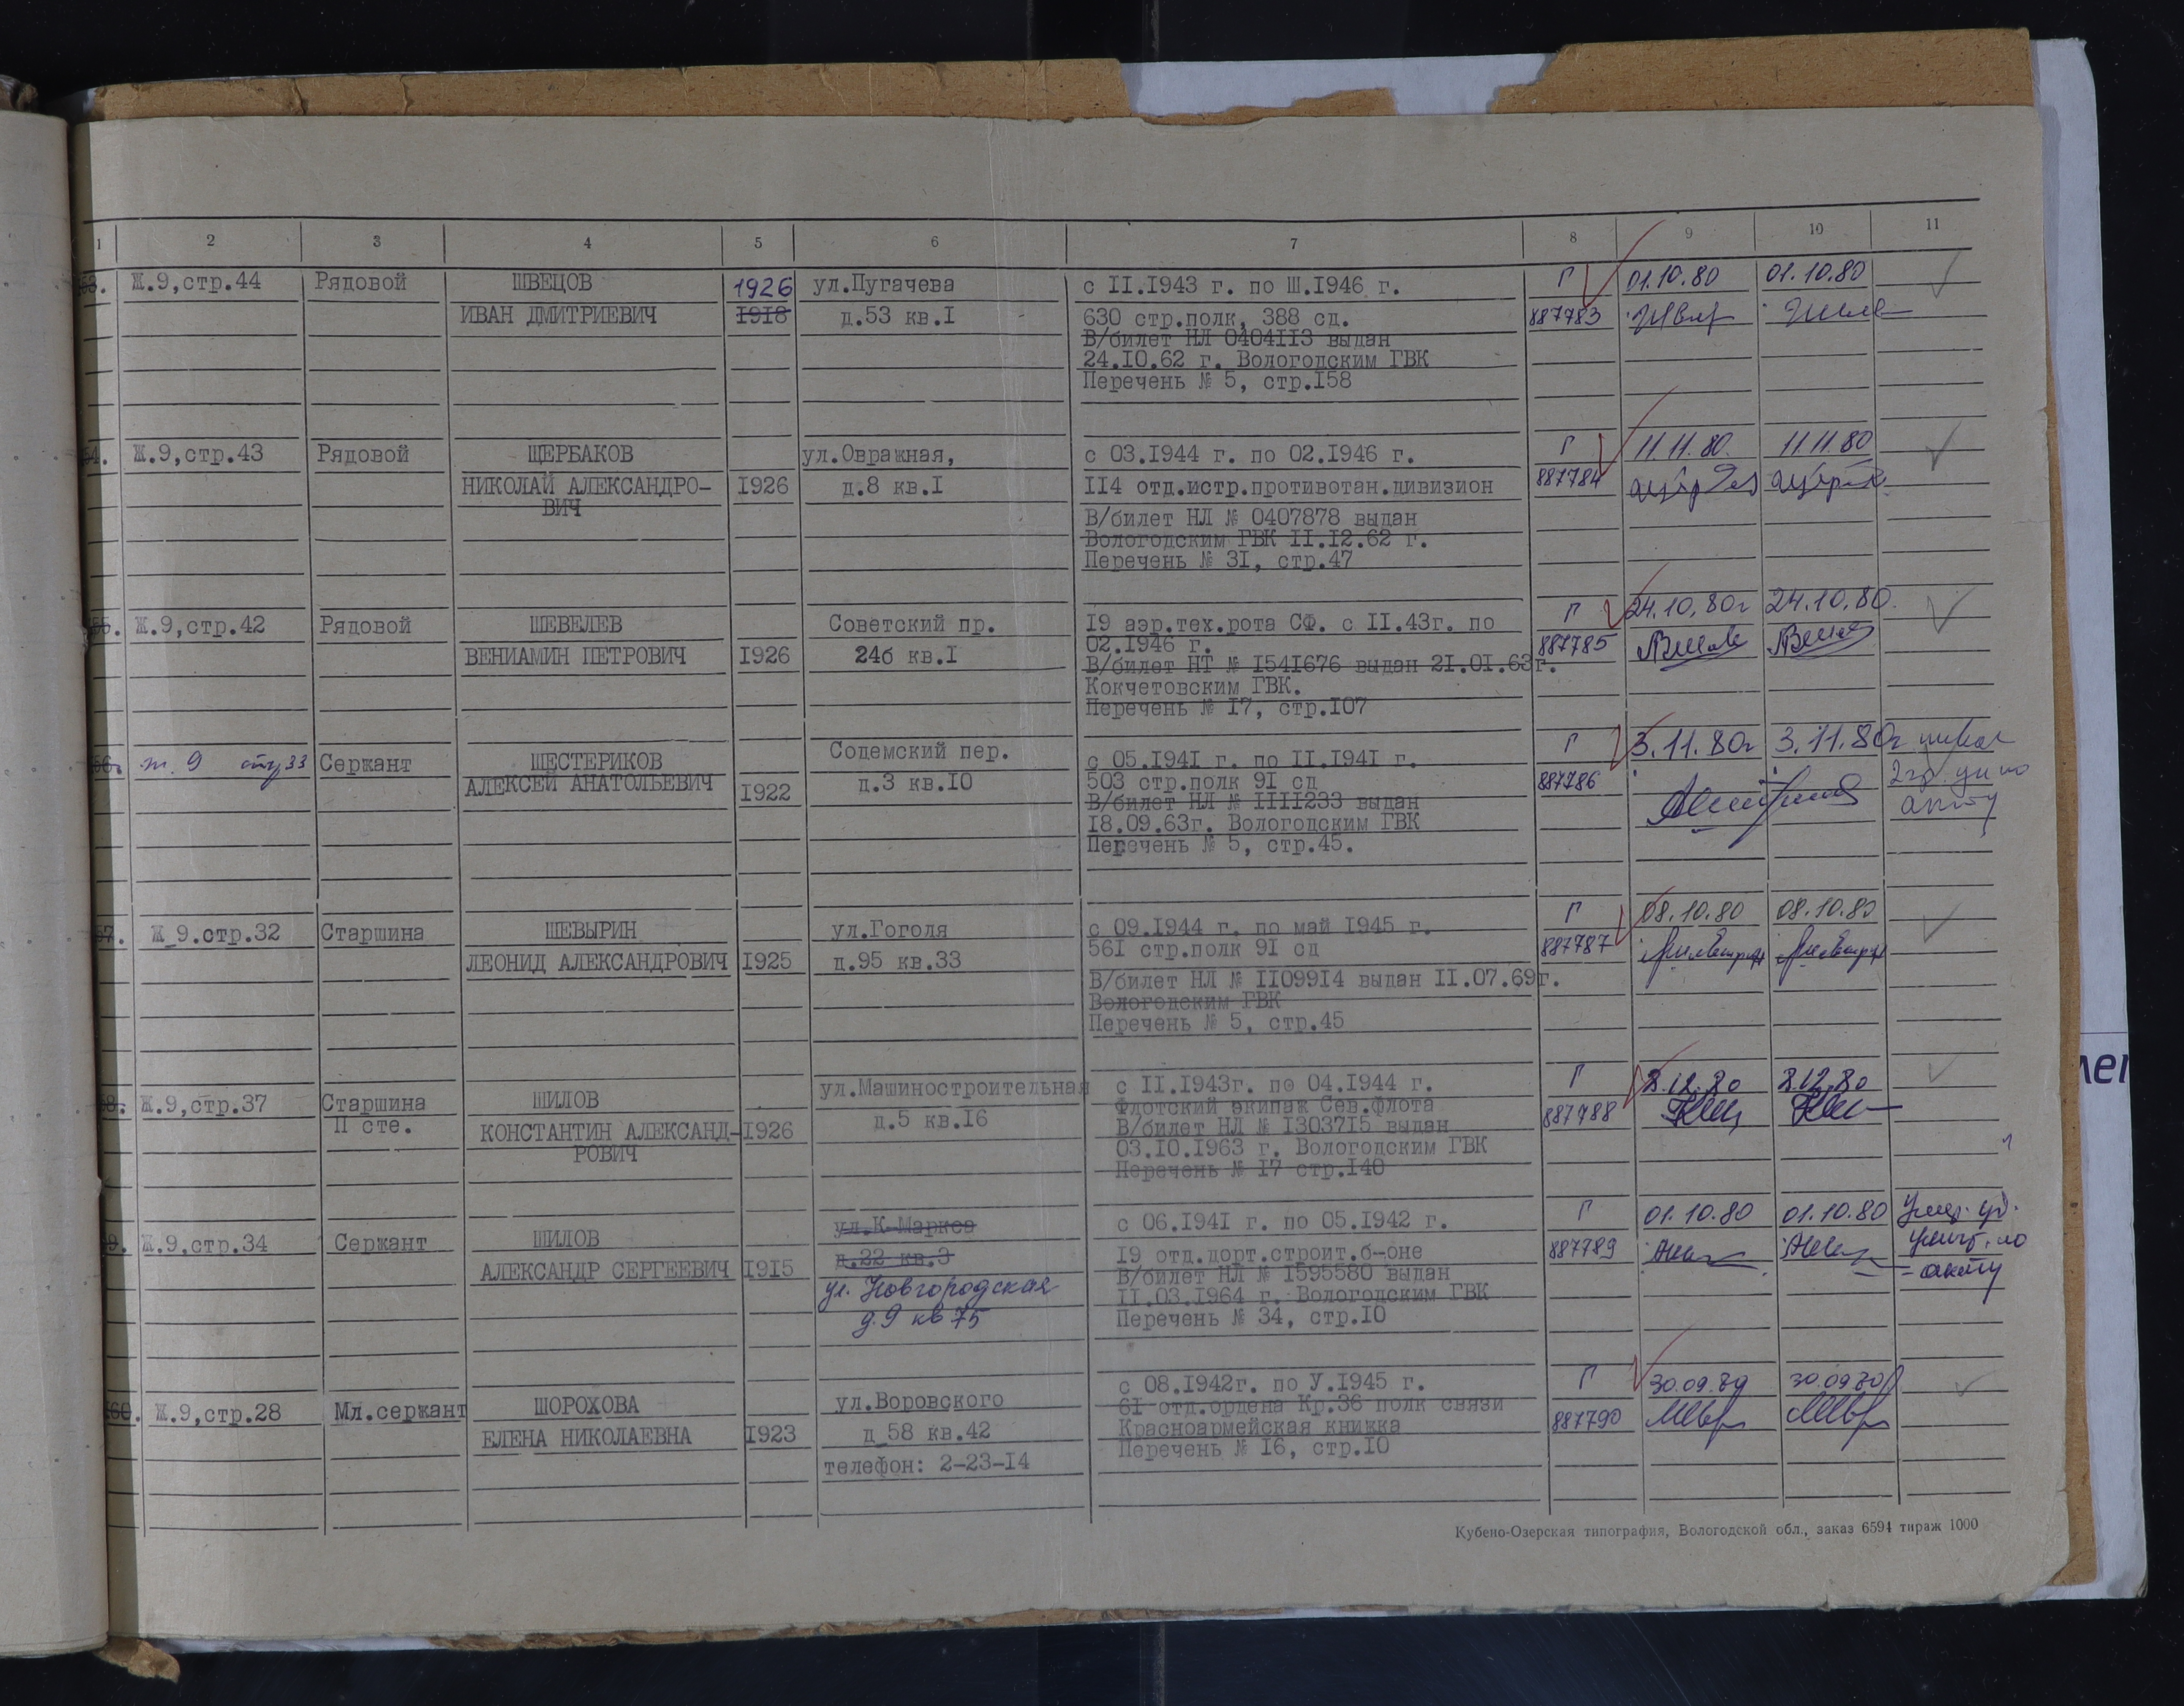 1 2 3 4 5 6 7 8 9 10 11
Ж.9,стр.44 Рядовой ШВЕЦОВ 1926 ул.Пугачева с II.I943 г. по Ш.I946 г. Г 01.10.80 01.10.80
ИВАН ДМИТРИЕВИЧ I918 д.53 кв.I 630 стр.полк, 388 сд. 887783
В/билет НЛ 0404II3 выдан
24.I0.62 г. Вологодским ГВК
Перечень № 5, стр.I58
Ж.9,стр.43 Рядовой ЩЕРБАКОВ ул.Овражная, с 03.I944 г. по 02.I946 г. Г 11.11.80. 11.11.80
НИКОЛАЙ АЛЕКСАНДРО- I926 д.8 кв.I II4 отд.истр.противотан.дивизион 887784
ВИЧ
В/билет НЛ № 0407878 выдан
Вологодским ГВК II.I2.62 г.
Перечень № 3I, стр.47
Ж.9,стр.42 Рядовой ШЕВЕЛЕВ Советский пр. I9 аэр.тех.рота СФ. с II.43г. по Г 24.10.80г 24.10.80.
02.I946 г.
ВЕНИАМИН ПЕТРОВИЧ I926 24б кв.I 887785
В/билет НТ № I54I676 выдан 2I.0I.63г.
Кокчетовским ГВК.
Перечень № I7, стр.I07
ж. 9 стр 33 Сержант ШЕСТЕРИКОВ Содемский пер. с 05.I94I г. по II.I94I г. Г 3.11.80г 3.11.80г
АЛЕКСЕЙ АНАТОЛЬЕВИЧ I922 д.3 кв.I0 503 стр.полк 9I сд 887786
В/билет НЛ № IIII233 выдан
I8.09.63г. Вологодским ГВК
акту
Перечень № 5, стр.45.
Ж_9.стр.32 Старшина ШЕВЫРИН ул.Гоголя с 09.I944 г. по май I945 г. Г 08.10.80 08.10.80
56I стр.полк 9I сд 887787
ЛЕОНИД АЛЕКСАНДРОВИЧ I925 д.95 кв.33
В/билет НЛ № II099I4 выдан II.07.69г.
Вологодским ГВК
Перечень № 5, стр.45
Ж.9,стр.37 Старшина ШИЛОВ ул.Машиностроительная с II.I943г. по 04.I944 г. Г 8.12.80 8.12.80
II сте. Флотский экипаж Сев.флота 887788
КОНСТАНТИН АЛЕКСАНД- I926 д.5 кв.I6 В/билет НЛ № I3037I5 выдан
РОВИЧ 03.I0.I963 г. Вологодским ГВК
Перечень № I7 стр.I40
Ж.9,стр.34 Сержант ШИЛОВ ул.К-Маркса с 06.I94I г. по 05.I942 г. Г 01.10.80 01.10.80
д.22 кв.3 I9 отд.дорт.строит.б-оне 887789
АЛЕКСАНДР СЕРГЕЕВИЧ I915 ул. Новгородская В/билет НЛ № I595580 выдан
д.9 кв 75 II.03.I964 г. Вологодским ГВК акту
Перечень № 34, стр.I0
Ж.9,стр.28 Мл.сержант ШОРОХОВА ул.Воровского с 08.I942г. по У.I945 г. Г 30.09.80 30.09.80
6I-отд.ордена Кр.36 полк связи
ЕЛЕНА НИКОЛАЕВНА I923 д_58 кв.42 Красноармейская книжка 887790
Перечень № I6, стр.I0
телефон: 2-23-I4
Кубено-Озерская типография, Вологодской обл., заказ 6594 тираж 1000